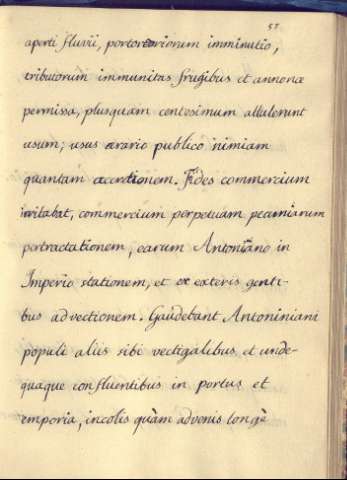 57
aperti fluvii, portoriorum imminutio,
tributorum immunitas frugibus et annonæ
permissa, plusquam centesimum attulerunt
usum; usus ærario publico nimiam
quantam accretionem. Fides commercium
invitabat, commercium perpetuam pecuniarum
pertractationem, earum Antoniano in
Imperio stationem, et ex exteris genti-
bus advectionem. Gaudebant Antoniniani
populi aliis sibi vectigalibus, et unde-
quaque confluentibus in portus et
emporia, incolis quàm advenis longè